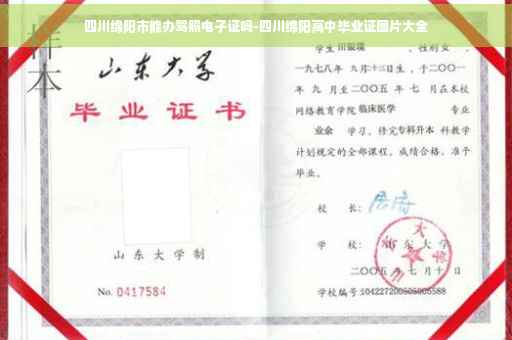 四川绵阳市能办驾照电子证吗-四川绵阳高中毕业证图片大全
样本
山东大学
毕业证书
山东大学制
No. 0417584
学生
性别女,
一九七八年 九月十二日生,于二〇〇一
年 九 月至二〇〇五 年 七 月在本校
网络教育学院 临床医学 专业
业余 学习,修完专科升本 科教学
计划规定的全部课程,成绩合格,准予
毕业。
校 长:
学 校: 山东大学
二〇〇五 年 七 月 十 日
学校编号: